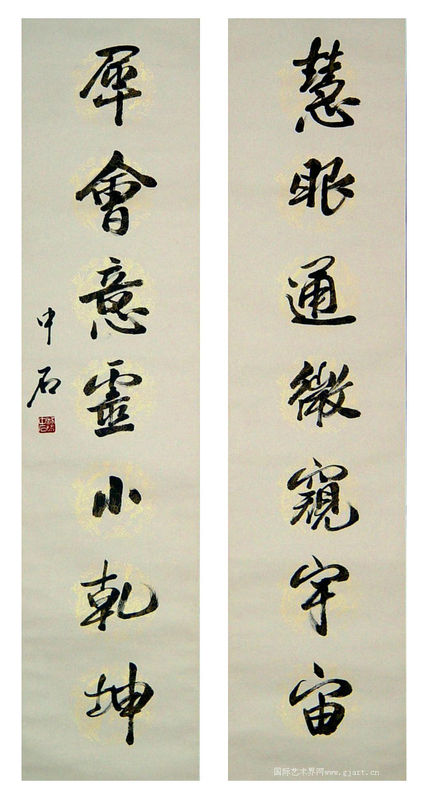 慧眼通微窺宇宙
犀會意靈小乾坤
中石
国际艺术界网www.gjart.cn